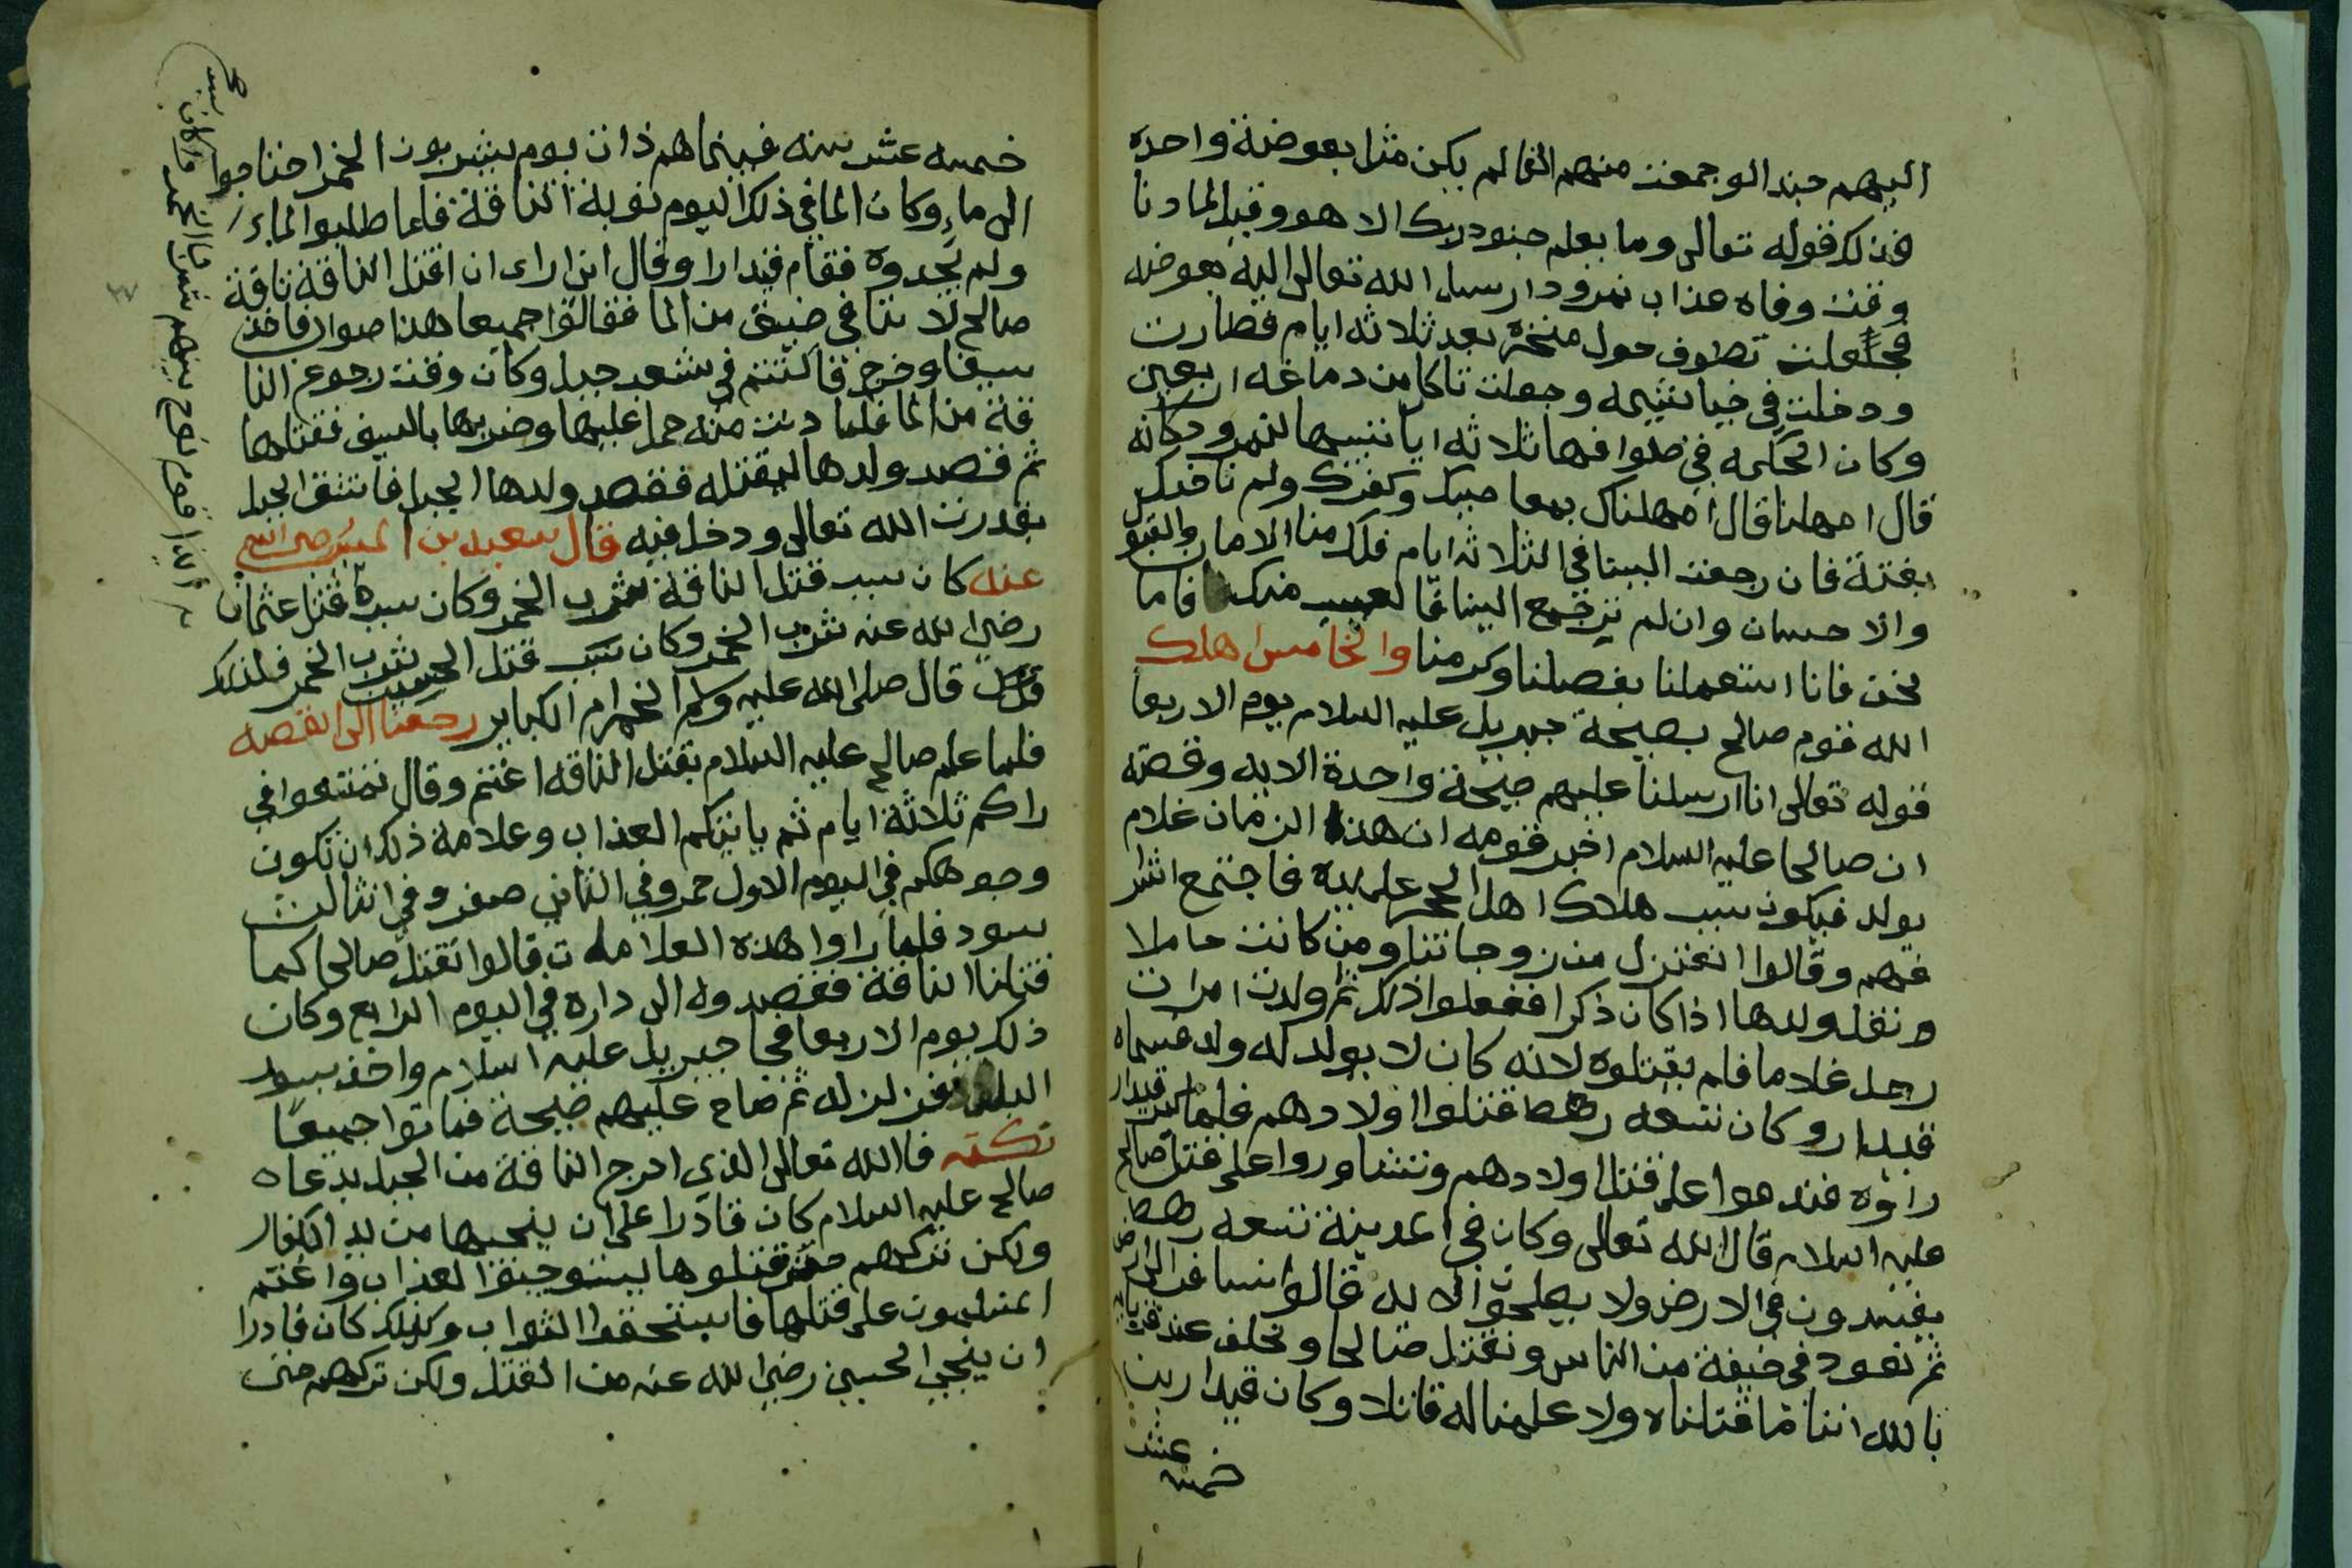 اليهم جندا لو جمعت منهم الفا لم يكن مثل بعوضة واحده
فذلك قوله تعالى وما يعلم جنود ربك الا هو وقيل لما دنا
وقت وفاه عذاب نمرود ارسل الله تعالى اليه بعوضه
فجعلت تطوف حول منخره بعد ثلاثه ايام فطارت
ودخلت في خياشيمه وجعلت تاكل من دماغه اربعين
وكان الحكمه في طوافها ثلاثه ايا تنبيها لنمرود كانه
قال امهلنا قال امهلناك بمعاصيك وكفرك ولم ناخذك
بغتة فان رجعت الينا في الثلاثه ايام فلك منا الامان والقبو
والاحسان وان لم ترجع الينا فالعيب منك فاما
نحن فانا استعملنا بفضلنا وكرمنا والخامس اهلك
الله قوم صالح بصيحة جبريل عليه السلام يوم الاربعا
قوله تعالى انا ارسلنا عليهم صيحة واحدة الايه وقصته
ان صالحا عليه السلام اخبر قومه ان هذا الزمان غلام
يولد فيكون سبب هلاك اهل الحجر على يده فاجتمع اشر
فهم وقالوا انعتزل من زوجاتنا ومن كانت حاملا
ونقتل ولدها اذا كان ذكرا ففعلوا ذلك ثم ولدت امرات
رجل غلاما فلم يقتلوه لانه كان لا يولد له ولد فسماه
قيدار وكان تسعه رهط قتلوا اولادهم فلما كبر قيدار
راؤه فندموا على قتل اولادهم وتشاوروا على قتل صالح
عليه السلام قال الله تعالى وكان في المدينة تسعه رهط
يفسدون في الارض ولا يصلحون الايه قالوا نسافر الى
ثم نعود في خيفة من الناس ونقتل صالحا ونحلف عند
بالله اننا ما قتلناه ولا علمنا له قاتلا وكان قيدار بن
خمسه عشر
خمسه عشر سنه فبينما هم ذات يوم يشربون الخمر احتاجوا
الى ماء وكان الما في ذلك اليوم نوبة الناقة فلما طلبوا الماء
ولم يجدوه فقام قيدارا وقال اني اراء ان اقتل الناقة ناقة
صالح لاننا في ضيق من الما فقالوا جميعا هذا صواب فاخذ
سيفا وخرج فاكتتم في شعب جبل وكان وقت رجوع النا
قة من الما فلما دنت منه حمل عليها وضربها بالسيف فقتلها
ثم قصد ولدها ليقتله فقصد ولدها الجبل فانشق الجبل
بقدرت الله تعالى ودخل فيه قال سعيد بن المسيب رضي الله
عنه كان سبب قتل الناقة شرب الخمر وكان سبب قتل عثمان
رضي الله عنه شرب الخمر وكان سبب قتل الحسين شرب الخمر فلذلك
قال صلى الله عليه وسلم الخمر ام الكباير رجعنا الى القصه
فلما علم صالح عليه السلام بقتل الناقه اغتم وقال تمتعوا في
داركم ثلاثة ايام ثم ياتيكم العذاب وعلامة ذلك ان تكون
وجوهكم في اليوم الاول حمر وفي الثاني صفر وفي الثالث
سود فلما راوا هذه العلامات قالوا نقتل صالحا كما
قتلنا الناقة فقصدوه الى داره في اليوم الرابع وكان
ذلك يوم الاربعا فجا جبريل عليه السلام واخذ بسور
البلد فزلزله ثم صاح عليهم صيحة فماتوا جميعا
نكته فالله تعالى الذي اخرج الناقة من الجبل بدعاه
صالح عليه السلام كان قادرا على ان ينجيها من يد الكفار
ولكن تركهم حتى قتلوها ليستوجبوا العذاب واغتم
المسلمون على قتلها فاستحقوا الثواب وكذلك كان قادرا
ان ينجي الحسين رضي الله عنه من القتل ولكن تركهم حتى